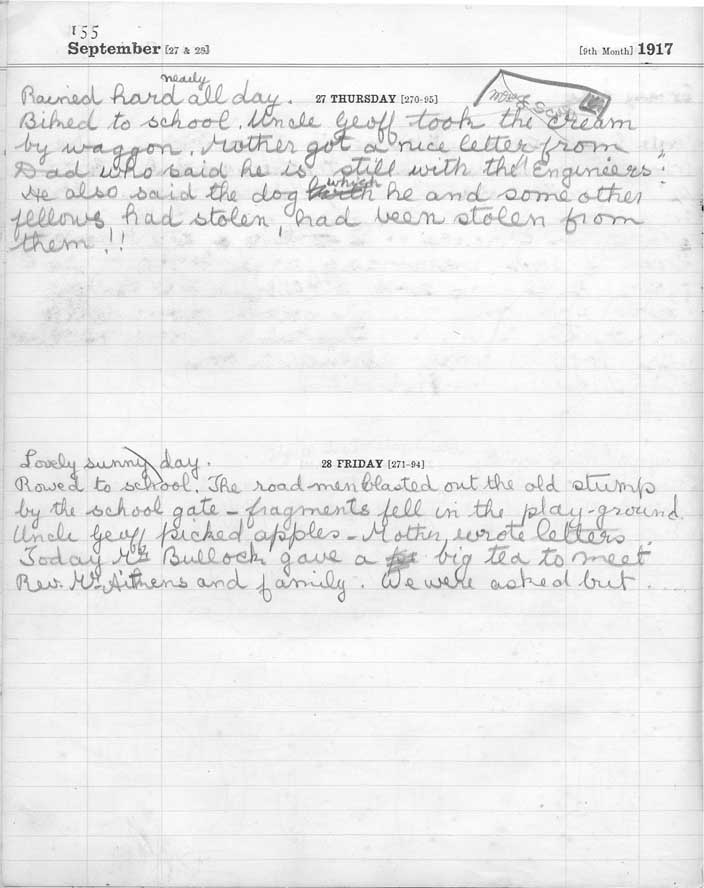 155
September [27 & 28] [9th Month] 1917
Rained hard nearly all day. 27 THURSDAY [270-95]
Biked to school. Uncle Geoff took the cream
by waggon. Mother got a nice letter from
Dad who said he is still with the "Engineers".
He also said the dog which he and some other
fellows had stolen, had been stolen from
them!!
Lovely sunny day. 28 FRIDAY [271-94]
Rowed to school. The road-men blasted out the old stump
by the school gate - fragments fell in the play-ground.
Uncle Geoff picked apples - Mother wrote letters.
Today Mrs Bullock gave a big tea to meet
Rev. Mr Aitkens and family. We were asked but ....